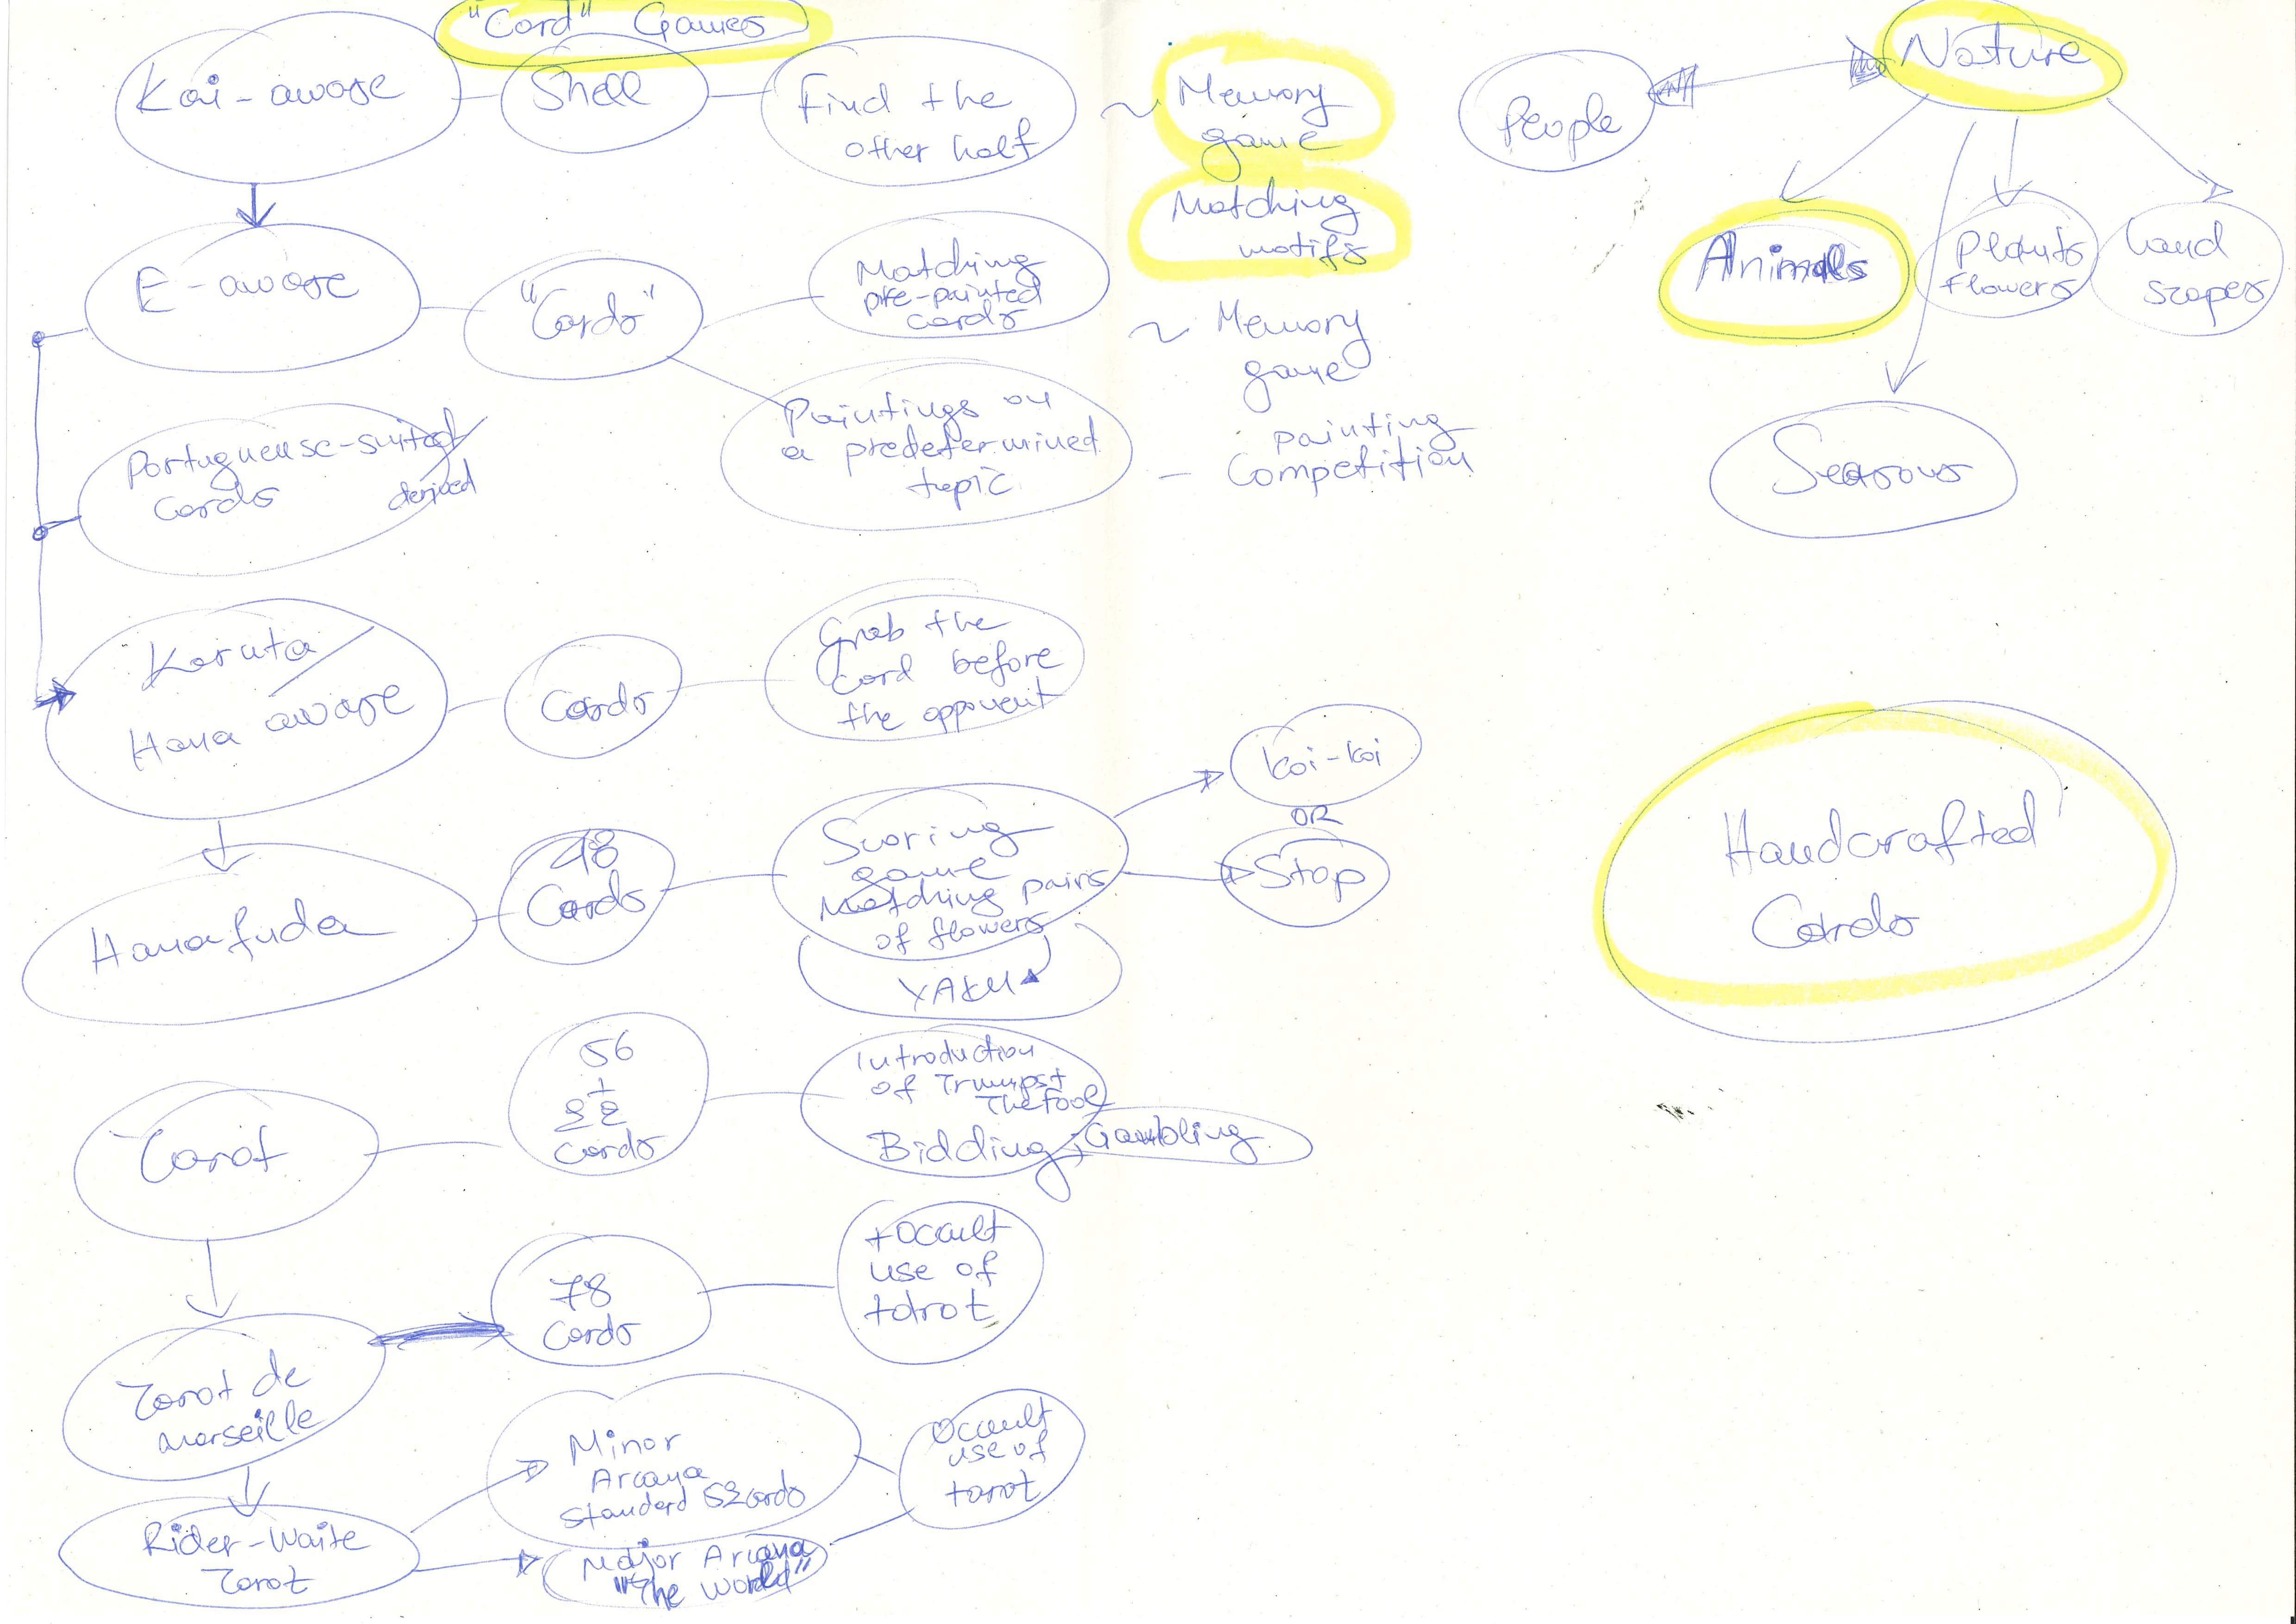 "Card" Games
Kai-awase
Shell
Find the
other half
~ Memory
game
Matching
motifs
E-awase
"Cards"
Matching
pre-painted
cards
~ Memory
game
Paintings on
a predetermined
topic
painting
- Competition
Portuguense-suited
Cards
derived
Karuta/
Hana awase
Cards
Grab the
card before
the opponent
Hanafuda
48
Cards
Scoring
game
Matching pairs
of flowers
YAKU
Koi-Koi
OR
Stop
Tarot
56
+
22
cards
Introduction
of Trumps+
The Fool
Bidding +
Gambling
Tarot de
Marseille
78
Cards
+Occult
use of
tarot
Rider-Waite
Tarot
Minor
Arcana
Standard 52cards
Major Arcana
"The World"
Occult
use of
tarot
People
Nature
Animals
Plants
flowers
Land
scapes
Seasons
Handcrafted
Cards